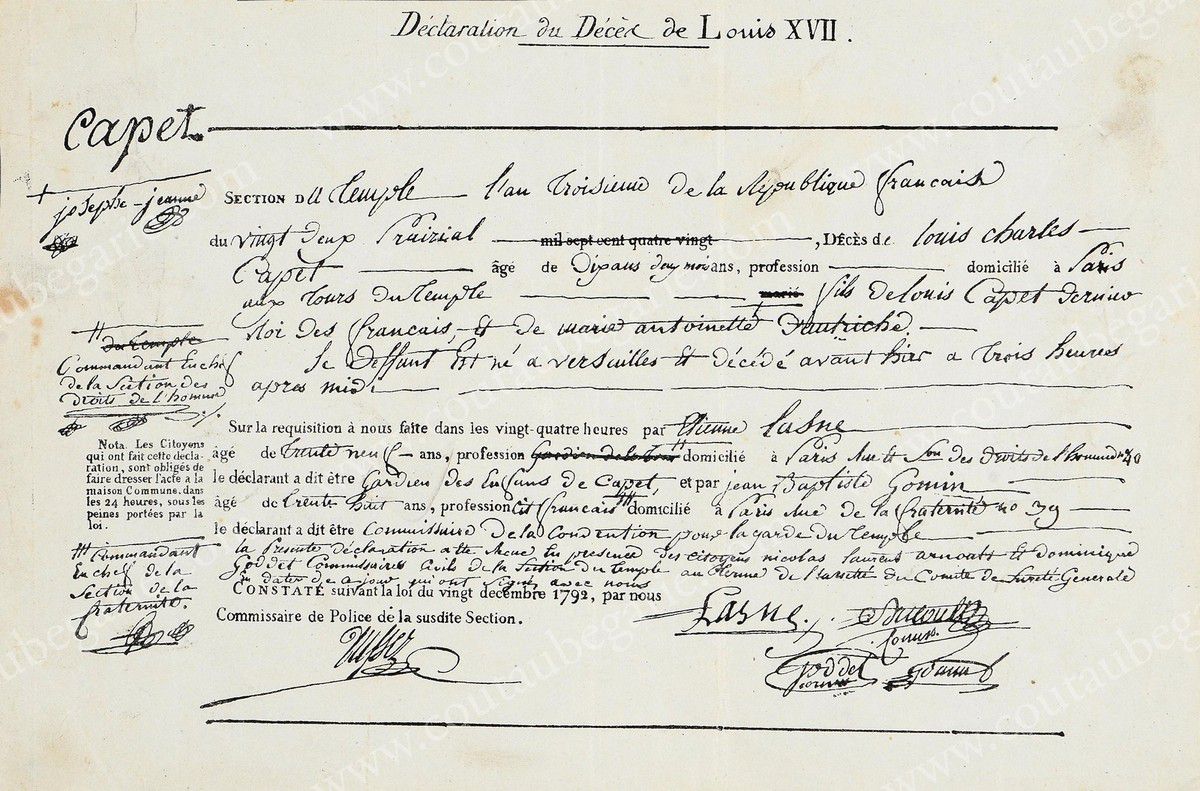 Déclaration du Décès de Louis XVII.
Capet
josephe-jeanne
SECTION DU Temple l'an troisieme de la République française
du vingt deux Prairial mil sept cent quatre vingt , DÉCÈS DE louis charles
Capet âgé de Dix ans deux mois ans, profession domicilié à Paris
aux tours du temple marié fils de louis Capet dernier
Roi des français, Et de marie antoinette D'autriche.
le Deffunt Est né a versailles Et décédé avant hier a trois heures
apres midi
du temple
Commandant En chef
de la Section des
Droits de l'homme
Sur la requisition à nous faite dans les vingt-quatre heures par Etienne Lasne
âgé de trente neuf ans, profession Gardien de la tour domicilié à Paris Rue et Son des Droits de l'homme no 48
le déclarant a dit être Gardien des Enfans de Capet, et par jean Baptiste Gomin
âgé de trente huit ans, profession cit français domicilié à Paris Rue de la fraternité no 39
le déclarant a dit être Commissaire De la Convention pour la garde du temple
la Presente déclaration a été En presence des citoyens nicolas laurent arnoult Et dominique
Goddet Commissaires Civils de la Section du temple au terme de l'arreté du Comité de Sureté Generale
En dater de ce jour, qui ont signé avec nous
CONSTATÉ suivant la loi du vingt décembre 1792, par nous
Commissaire de Police de la susdite Section.
Nota. Les Citoyens
qui ont fait cette décla-
ration, sont obligés de
faire dresser l'acte a la
maison Commune, dans
les 24 heures, sous les
peines portées par la
loi.
Commandant
En chef de la
Section de la
fraternité.
Lasne
Arnoult
comiss.
Dusser
Goddet
Gomin
www.coutaubegarie.com